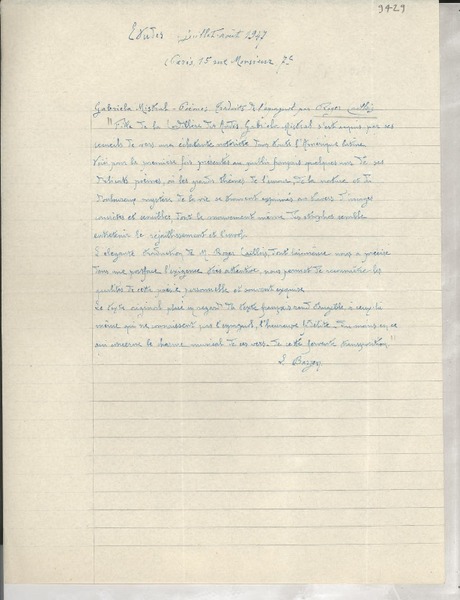 3429
Etudes - juillet août 1947
(Paris 15 rue Monsieur 7e
Gabriela Mistral - Poèmes traduits de l'espagnol par Roger Caillois
"Fille de la Cordillère des Andes Gabriela Mistral s'est acquis par ses
recueils de vers une éclatante notoriété dans toute l'Amérique latine
Voici, pour la première fois présentés au public français quelques uns de ses
poèmes, où les grands thèmes de l'amour, de la nature et du
douloureux mystère de la vie se trouvent exprimés au travers d'images
concrètes et sensibles dont le mouvement même des strophes semble
entretenir le rejaillissement et l'essor.
L'élégante traduction de M. Roger Caillois, dont lui-même nous a précisé
dans une postface l'exigence très attentive nous permet de reconnaître les
qualités de cette poésie personnelle et souvent exquise
Le texte original placé en regard du texte français rend sensible à ceux-là
même qui ne connaissent pas l'espagnol, l'heureuse fidélité - du moins en ce
qui concerne le charme musical de ces vers - de cette fervente transposition"
L. Barjon